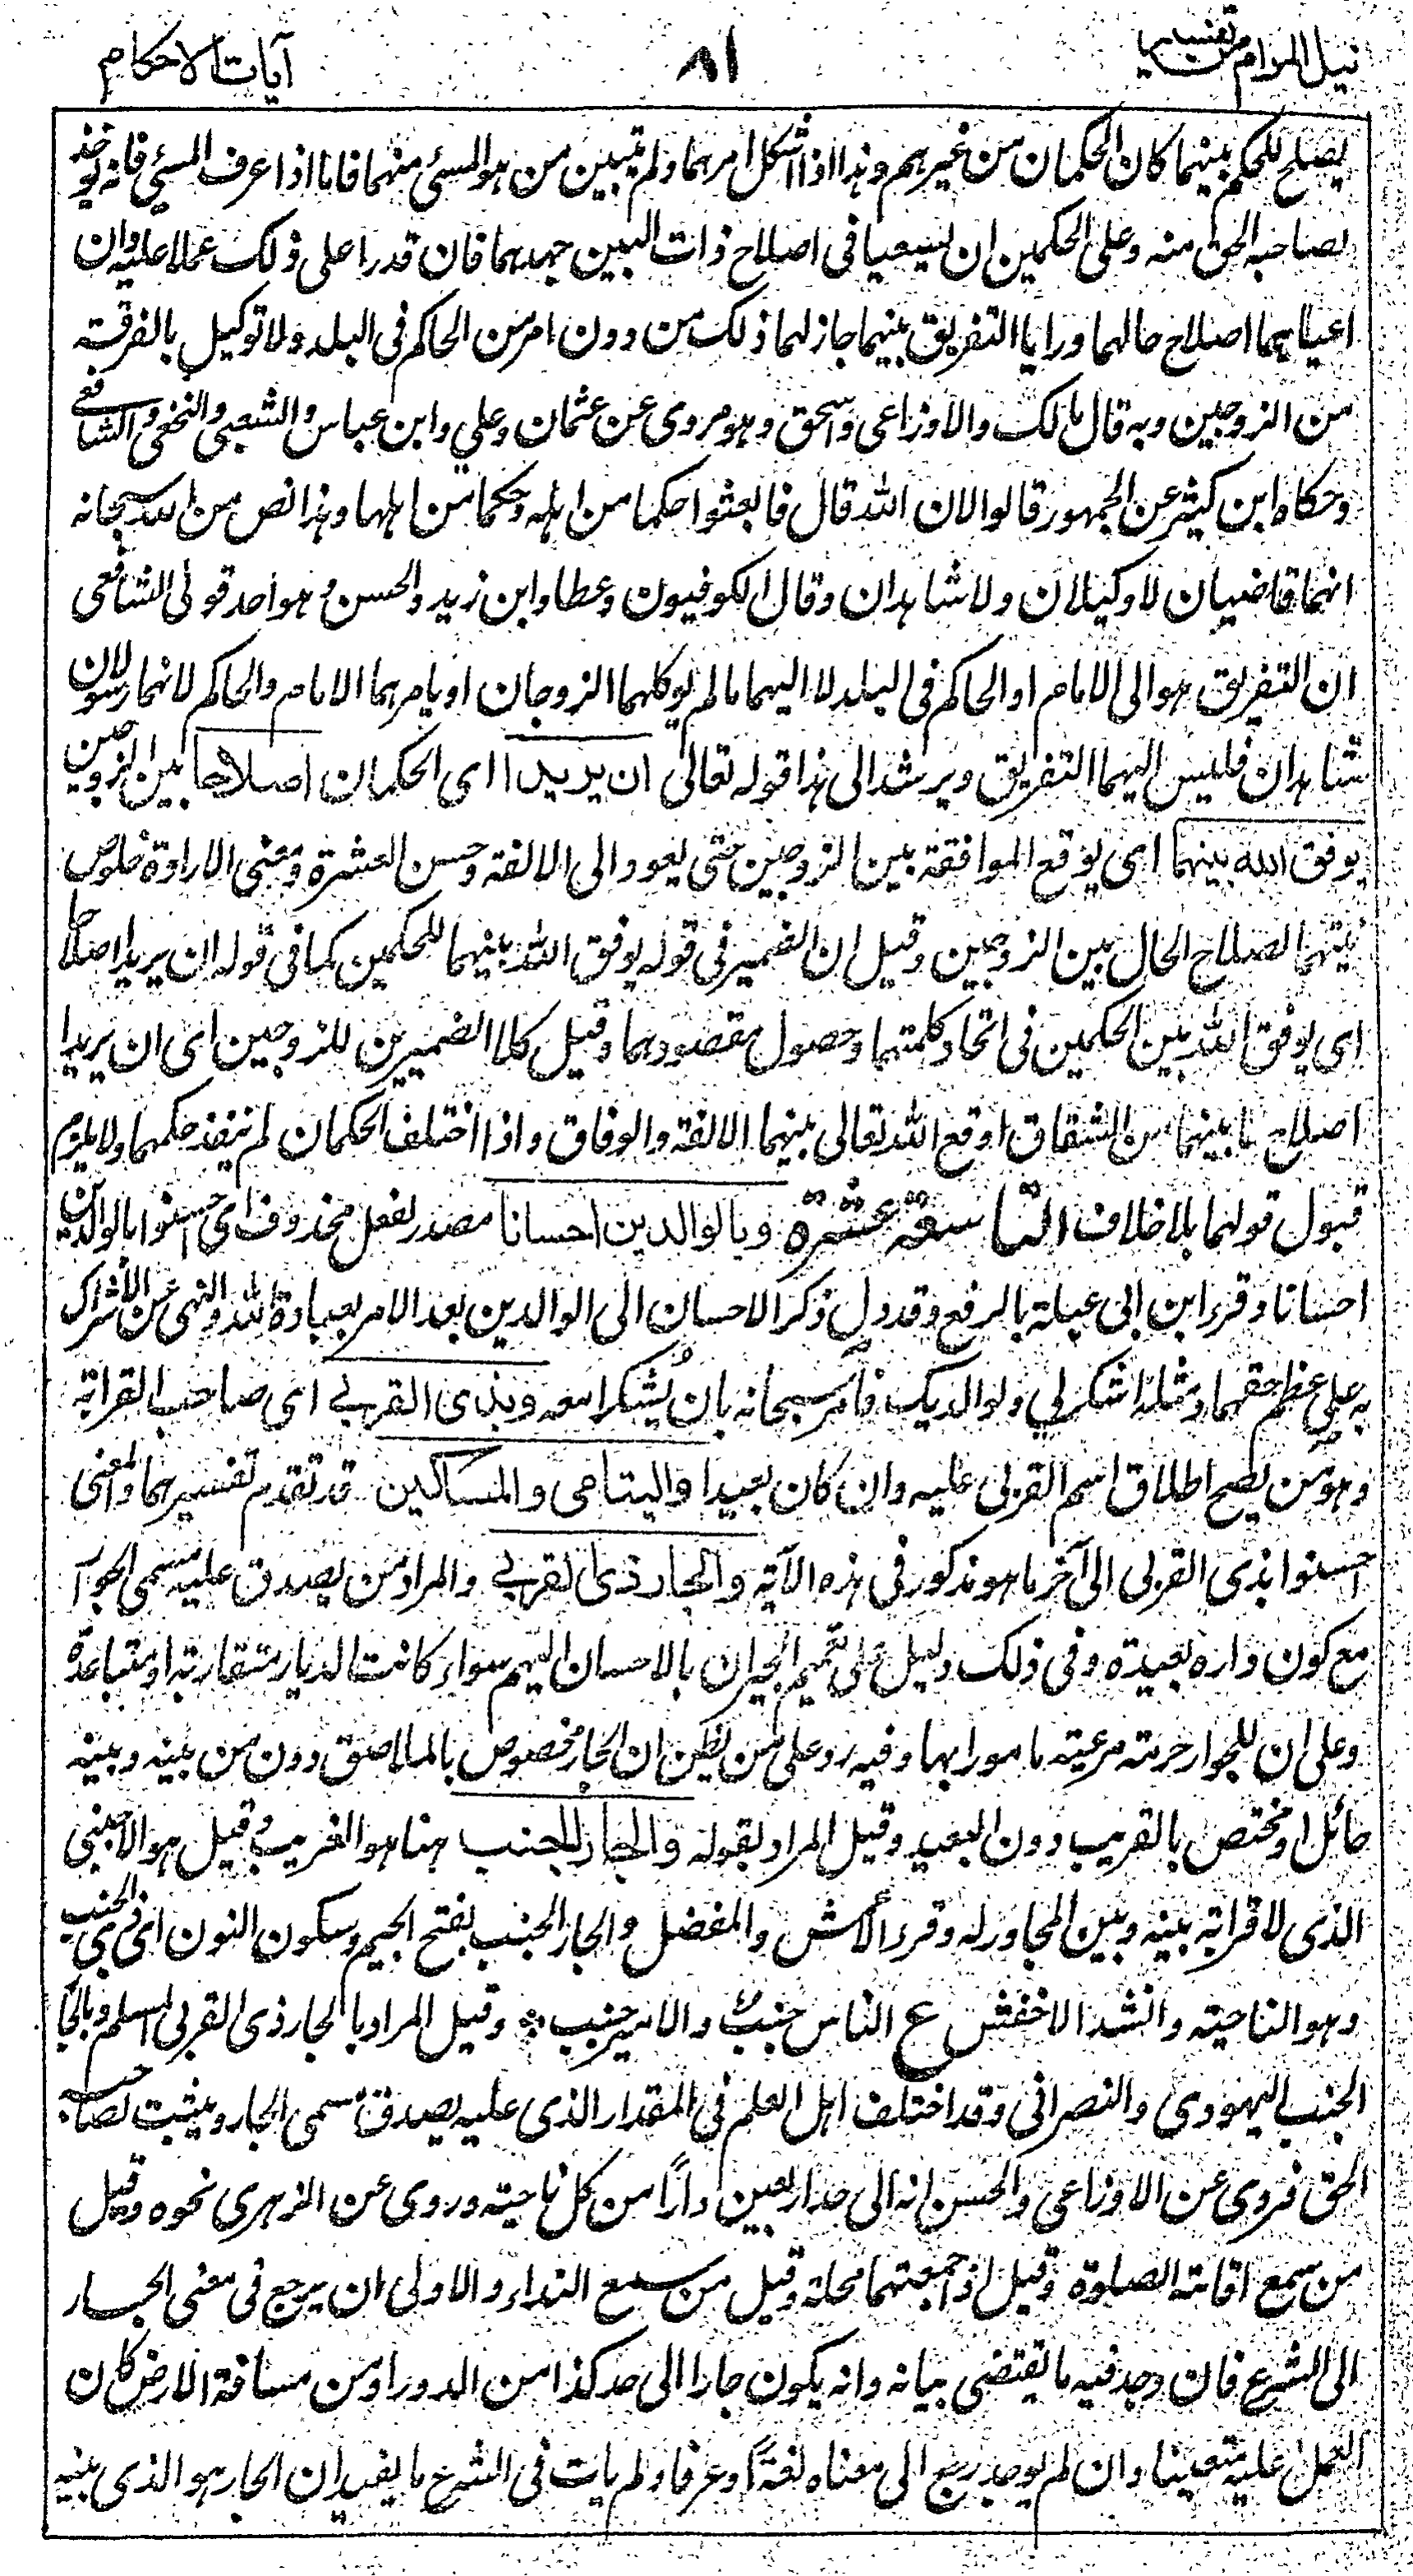 نيل المرام من تفسير
٨١
آيات الاحكام
يصلح للحكم بينهما كان الحكمان من غيرهم وهذا اذا اشكل امرهما ولم يتبين من هو المسئ منهما فاما اذا عرف المسئ فانه يوخذ
لصاحبه الحق منه وعلى الحكمين ان يسعيا فى اصلاح ذات البين جهدهما فان قدرا على ذلك عملا عليه وان
اعياهما اصلاح حالهما ورايا التفريق بينهما جاز لهما ذلك من دون امر من الحاكم فى البلد ولا توكيل بالفرقة
من الزوجين وبه قال مالك والاوزاعى واسحق وهو مروى عن عثمان وعلي وابن عباس والشعبى والنخعى والشافعى
وحكاه ابن كثير عن الجمهور قالوا لان الله قال فابعثوا حكما من اهله وحكما من اهلها وهذا نص من الله سبحانه
انهما قاضيان لا وكيلان ولا شاهدان وقال الكوفيون وعطا وابن زيد والحسن وهو احد قولى الشافعى
ان التفريق هو الى الامام او الحاكم فى البلد لا اليهما ما لم يوكلهما الزوجان او يامرهما الامام والحاكم لانهما رسولان
شاهدان فليس اليهما التفريق ويرشد الى هذا قوله تعالى ان يريدا اى الحكمان اصلاحا بين الزوجين
يوفق الله بينهما اى يوقع الموافقة بين الزوجين حتى يعودا الى الالفة وحسن العشرة ومعنى الارادة خلوص
نيتهما لصلاح الحال بين الزوجين وقيل ان الضمير فى قوله يوفق الله بينهما للحكمين كما فى قوله ان يريدا اصلاحا
اى يوفق الله بين الحكمين فى اتحاد كلمتهما وحصول مقصودهما وقيل كلا الضميرين للزوجين اى ان يريدا
اصلاح ما بينهما من الشقاق اوقع الله تعالى بينهما الالفة والوفاق واذا اختلف الحكمان لم ينفذ حكمهما ولا يلزم
قبول قولهما بلا خلاف التاسعة عشرة وبالوالدين احسانا مصدر لفعل محذوف اى احسنوا بالوالدين
احسانا وقرء ابن ابى عبلة بالرفع وقد دل ذكر الاحسان الى الوالدين بعد الامر بعبادة الله والنهى عن الأشراك
به على عظم حقهما ومثله اشكر لي ولوالديك فامر سبحانه بان يُشكرا معه وبذى القربى اى صاحب القرابة
وهو من يصح اطلاق اسم القربى عليه وان كان بعيدا واليتامى والمساكين قد تقدم تفسيرهما والمعنى
احسنوا بذى القربى الى آخر ما هو مذكور فى هذه الآية والجار ذى القربى والمراد من يصدق عليه مسمى الجوار
مع كون داره بعيدة وفى ذلك دليل على تعميم الجيران بالاحسان اليهم سواء كانت الديار متقاربة او متباعدة
وعلى ان للجوار حرمة مرعية مامورا بها وفيه رد على من يظن ان الجار مخصوص بالملاصق دون من بينه وبينه
حائل او مختص بالقريب دون البعيد وقيل المراد بقوله والجار الجنب هنا هو الغريب وقيل هو الاجنبى
الذى لا قرابة بينه وبين المجاور له وقرء الأعمش والمفضل والجار الجنب بفتح الجيم وسكون النون اى ذى الجنب
وهو الناحية وانشد الاخفش ع الناس جنبٌ والامير جنب ؞ وقيل المراد بالجار ذى القربى المسلم وبالجار
الجنب اليهودى والنصرانى وقد اختلف اهل العلم فى المقدار الذى عليه يصدق مسمى الجار ويثبت لصاحبه
الحق فروى عن الاوزاعى والحسن انه الى حد اربعين داراً من كل ناحية وروى عن الزهرى نحوه وقيل
من سمع اقامة الصلوة وقيل اذا جمعتهما محلة وقيل من سمع النداء والاولى ان يرجع فى معنى الجار
الى الشرع فان وجد فيه ما يقتضى بيانه وانه يكون جارا الى حد كذا من الدور او من مسافة الارض كان
العمل عليه متعينا وان لم يوجد رجع الى معناه لغةً او عرفا ولم يات فى الشرع ما يفيد ان الجار هو الذى بينه